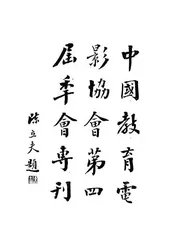 中國教育電
影協會第四
屆年會專刊
陳立夫題